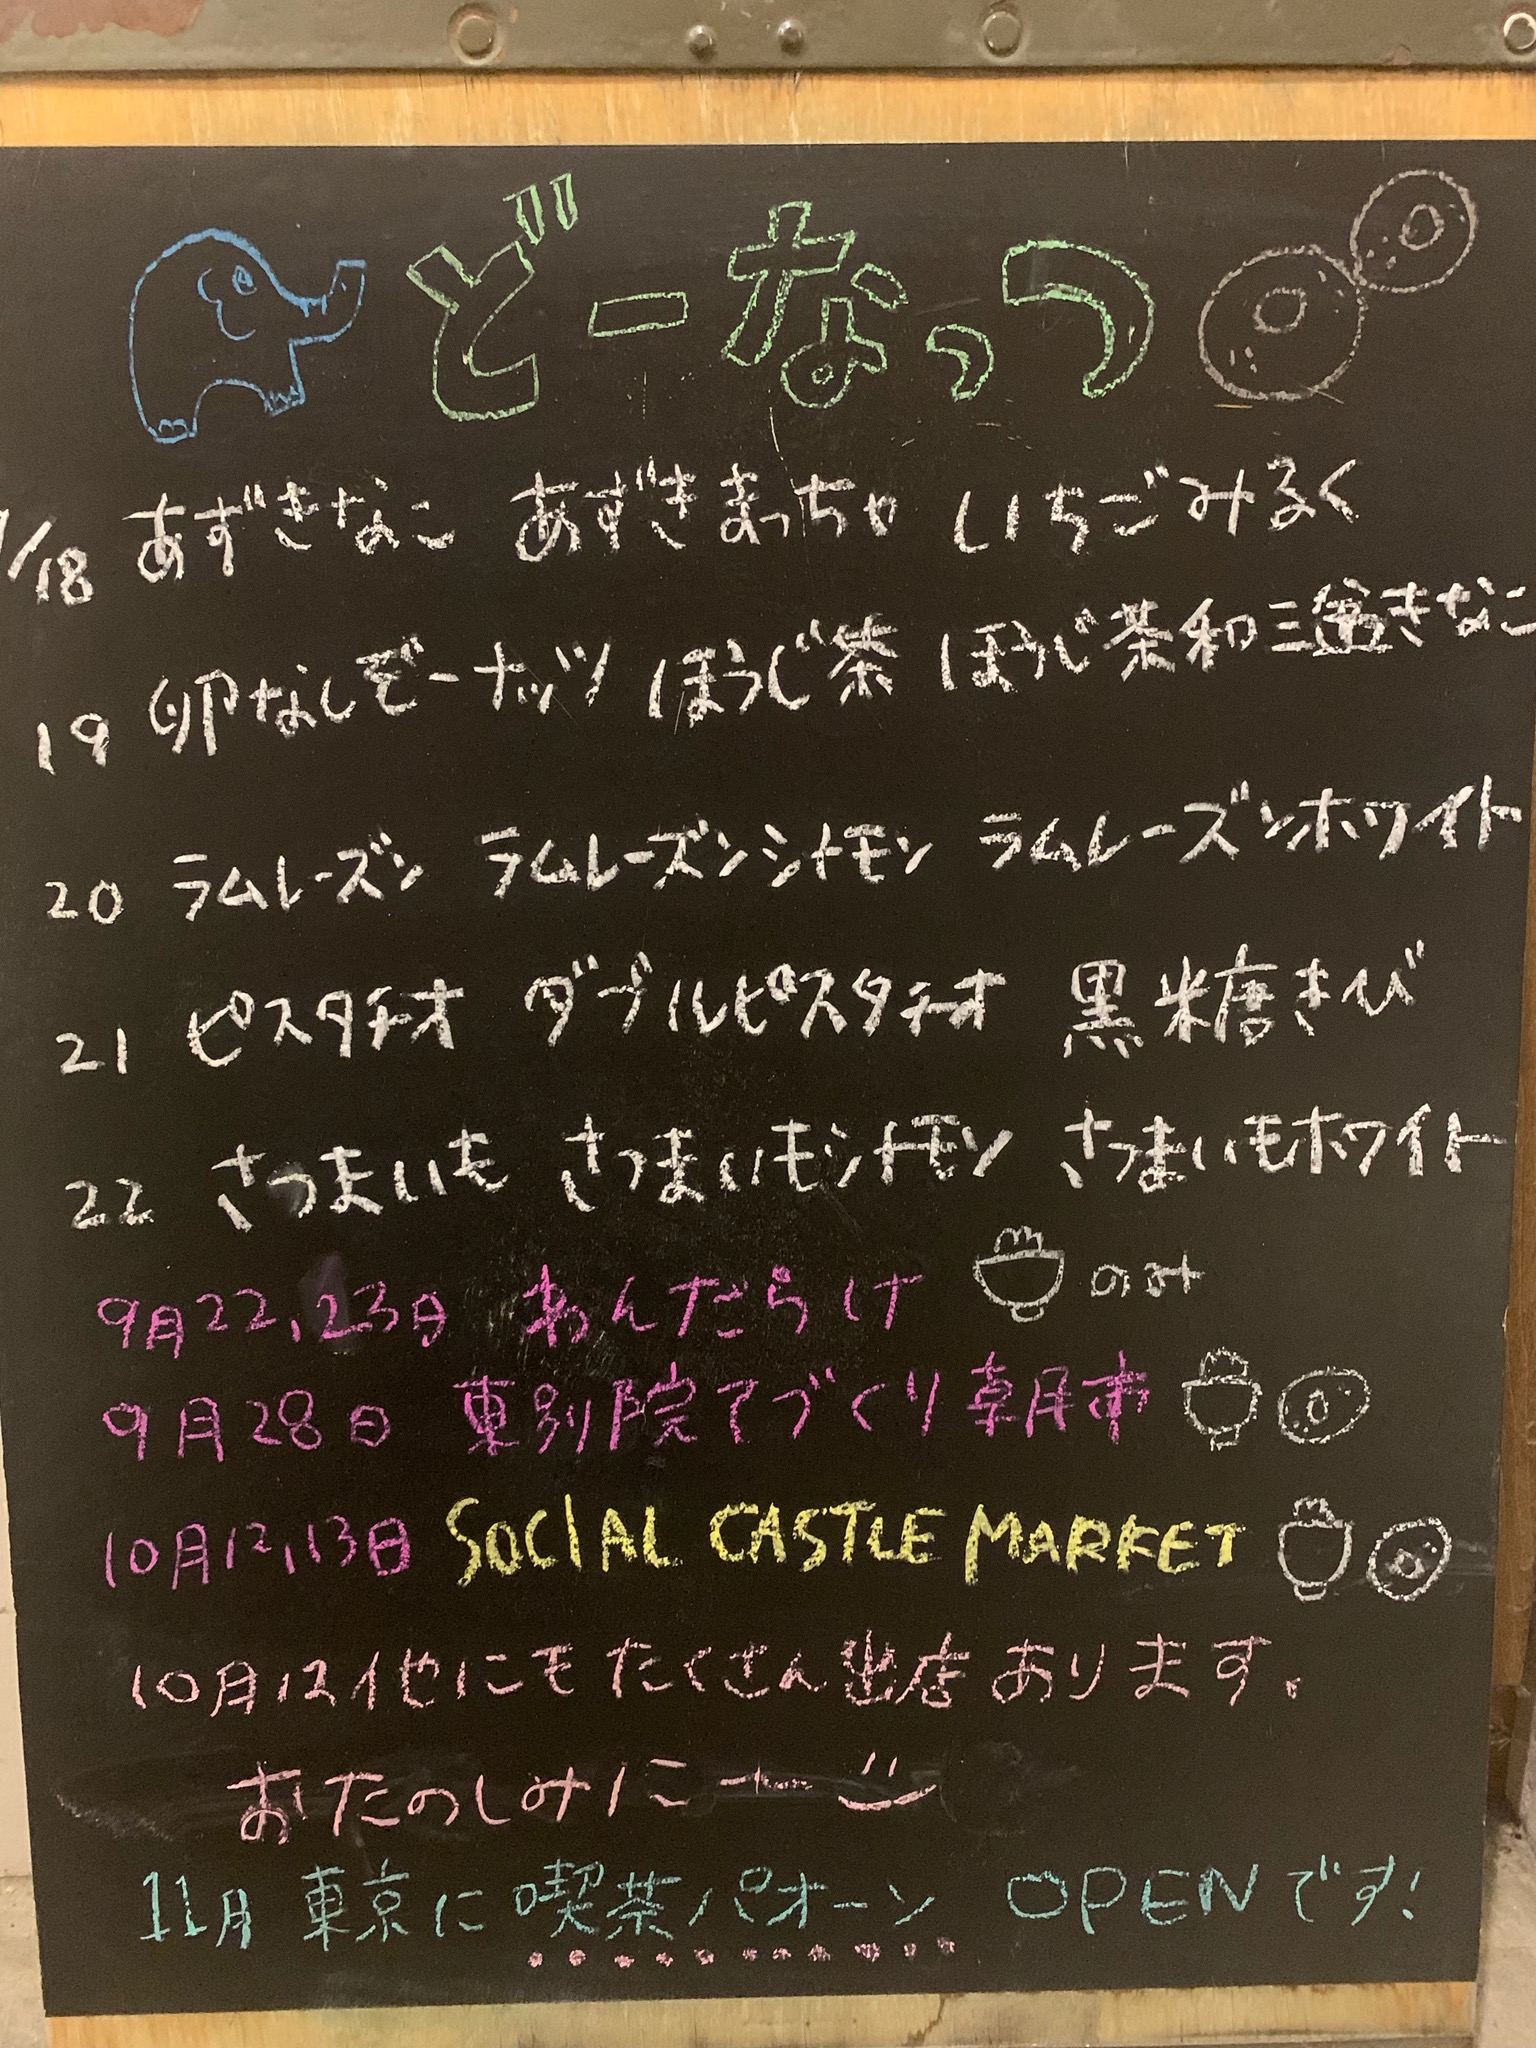 どーなっつ
/18 あずきなこ あずきまっちゃ いちごみるく
19 卵なしどーナッツ ほうじ茶 ほうじ茶和三盆きなこ
20 ラムレーズン ラムレーズンシナモン ラムレーズンホワイト
21 ピスタチオ ダブルピスタチオ 黒糖きび
22 さつまいも さつまいもシナモン さつまいもホワイト
9月22,23日 わんだらけ のみ
9月28日 東別院てづくり朝市
10月12,13日 SOCIAL CASTLE MARKET
10月は他にもたくさん出店あります。
おたのしみにー
11月 東京に喫茶パオーン OPENです!